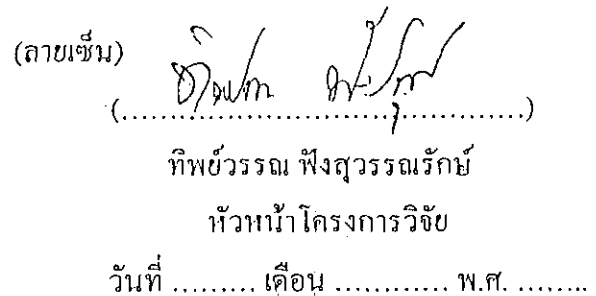 (ลายเซ็น)
(..............................................)
ทิพย์วรรณ ฟังสุวรรณรักษ์
หัวหน้าโครงการวิจัย
วันที่ ......... เดือน ............ พ.ศ. ........